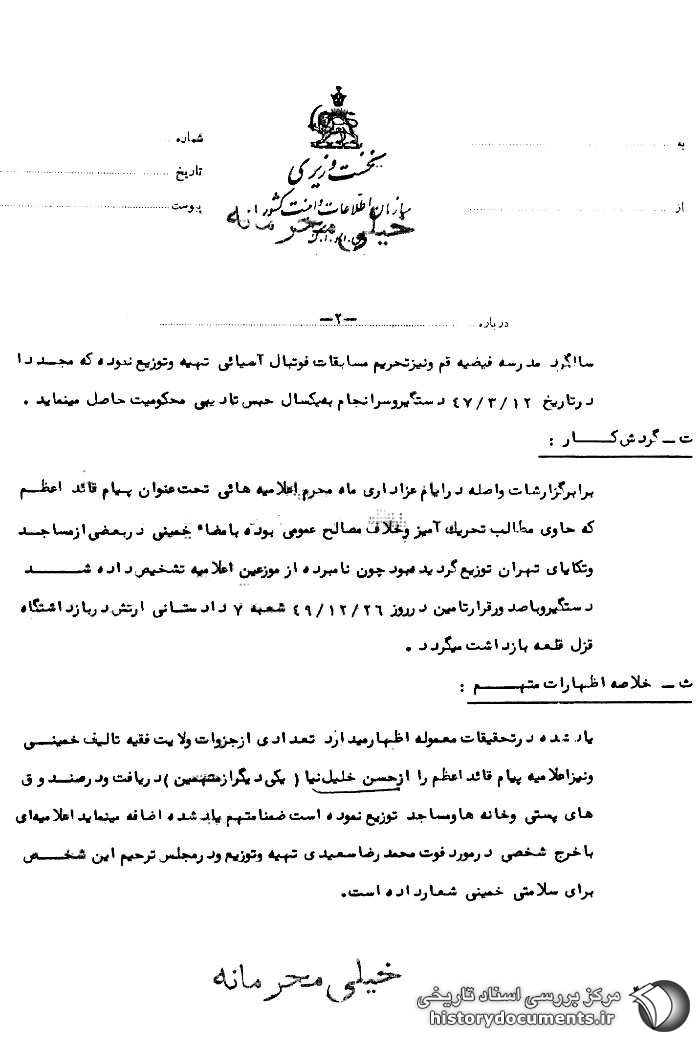 به
شماره
نخست وزیری
تاریخ
سازمان اطلاعات و امنیت کشور
از
پیوست
خیلی محرمانه
درباره
-۲-
سالگرد مدرسه فیضیه قم ونیزتحریم مسابقات فوتبال آسیائی تهیه وتوزیع نموده که مجددا
درتاریخ ۴۷/۳/۱۲ دستگیروسرانجام به یکسال حبس تادیبی محکومیت حاصل مینماید .
ت ــ گردش کـــار :
برابرگزارشات واصله درایام عزاداری ماه محرم اعلامیه هائی تحت عنوان پیام قائد اعظم
که حاوی مطالب تحریك آمیز وخلاف مصالح عمومی بوده بامضاء خمینی دربعضی ازمساجد
وتکایای تهران توزیع گردیده بود چون نامبرده از موزعین اعلامیه تشخیص داده شـــد
دستگیروباصدورقرارتامین درروز ۴۹/۱۲/۲۶ شعبه ۷ دادستانی ارتش دربازداشتگاه
قزل قلعه بازداشت میگردد .
ث ــ خلاصه اظهارات متهـــم :
یادشده درتحقیقات معموله اظهارمیدارد تعدادی ازجزوات ولایت فقیه تالیف خمینـــی
ونیزاعلامیه پیام قائداعظم را ازحسن خلیل نیا ( یکی دیگرازمتهمین ) دریافت ودرصندوق
های پستی وخانه هاومساجد توزیع نموده است ضمنامتهم یادشده اضافه مینماید اعلامیه‌ای
باخرج شخصی درمورد فوت محمد رضاسعیدی تهیه وتوزیع ودرمجلس ترحیم این شخـــص
برای سلامتی خمینی شعارداده است.
خیلی محرمانه
مرکز بررسی اسناد تاریخی
historydocuments.ir